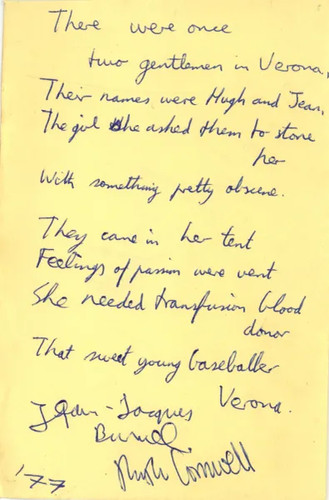 There were once
two gentlemen in Verona,
Their names were Hugh and Jean,
The girl she asked them to stone
her
With something pretty obscene.
They came in her tent
Feelings of passion were vent
She needed transfusion blood
donor
That sweet young baseballer
Verona.
Jean-Jacques
Burnel
Hugh Cornwell
'77